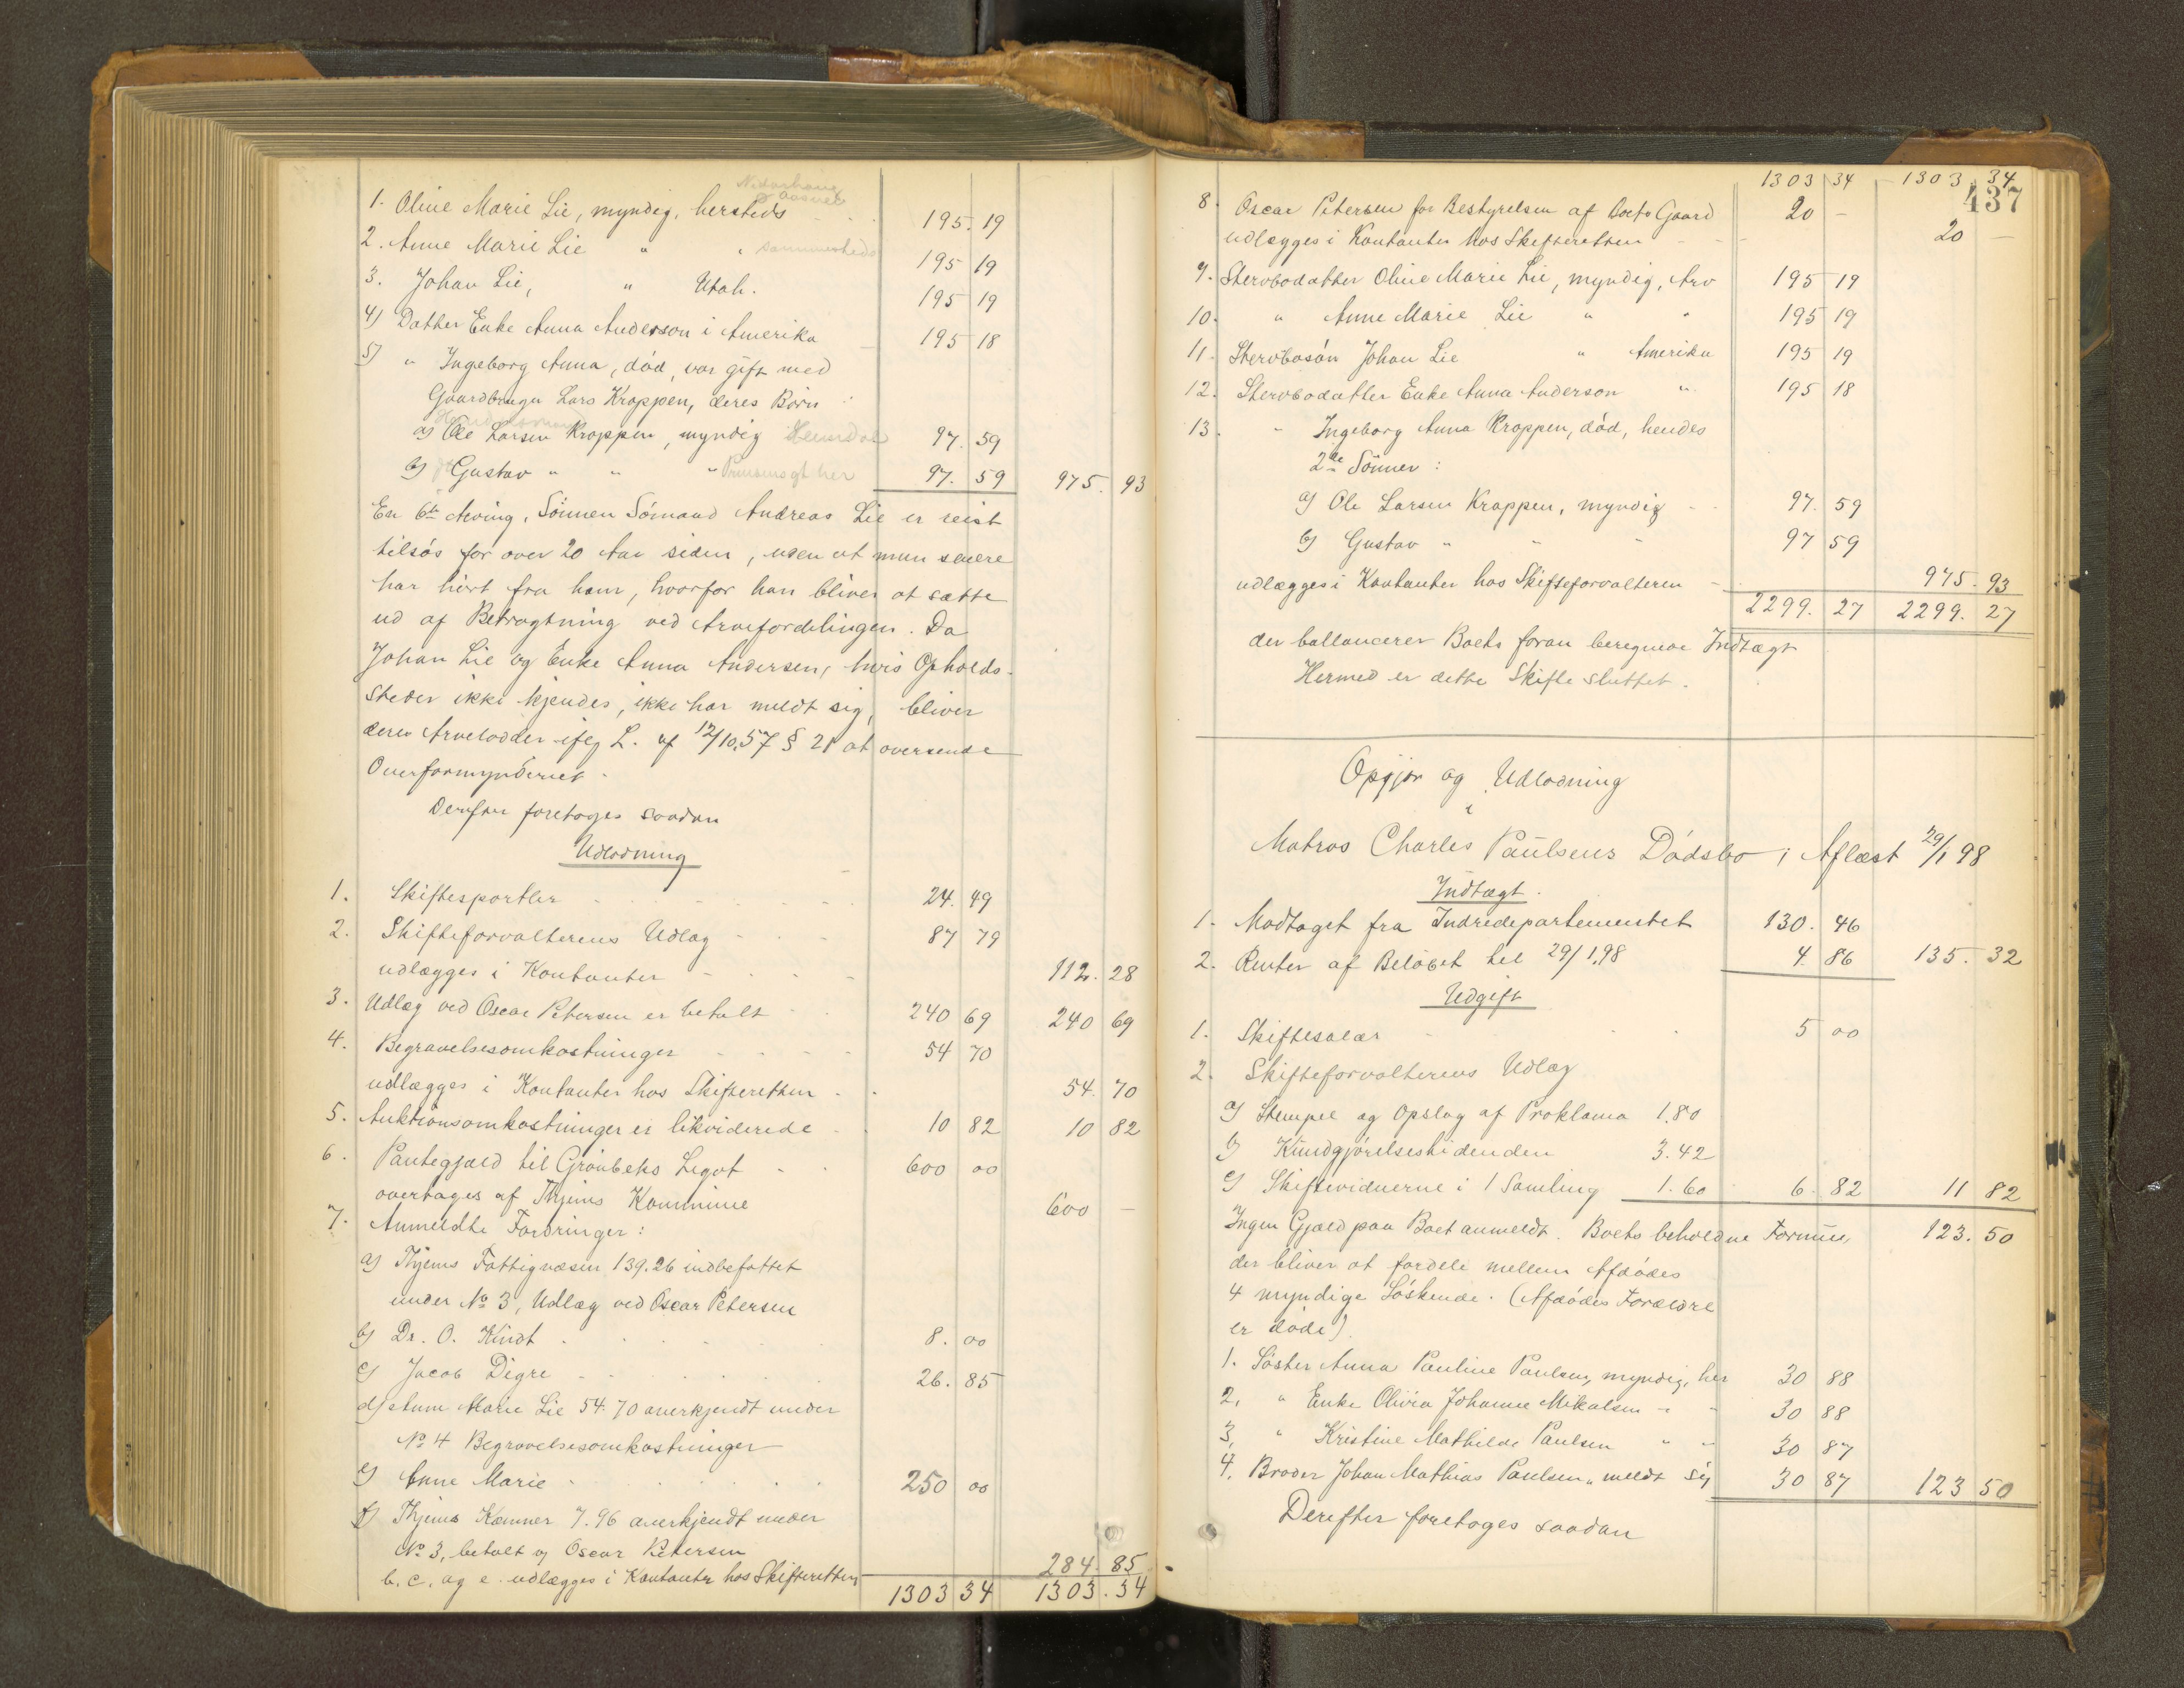 1. Oline Marie Lie, myndig, hersteds 195. 19
2. Anne Marie Lie " " sammesteds 195 19
3. Johan Lie, " Utah. 195 19
4) Datter Enke Anna Anderson i Amerika 195 18
5) " Ingeborg Anna, död, var gift med
Gaardbruger Lars Kroppen, deres Börn
a) Ole Larsen Kroppen, myndig 97. 59
b) Gustav " " " Prinsensgt her 97. 59 975. 93
En 6te Arving, Sönnen Sömand Andreas Lie er reist
tilsös for over 20 Aar siden, uden at man senere
har hört fra ham, hvorfor han bliver at sætte
ud af Betragtning ved Arvefordelingen. Da
Johan Lie og Enke Anna Andersen, hvis Opholds-
steder ikke kjendes, ikke har meldt sig, bliver
deres Arvelodder ifög L. af 12/10.57 § 21 at oversende
Overformynderiet.
Derefter foretages saadan
Udlodning
1. Skiftesportler 24. 49
2. Skifteforvalterens Udlæg 87 79
udlægges i Kontanter 112. 28
3. Udlæg ved Oscar Petersen er betalt 240 69 240 69
4. Begravelsesomkostninger 54 70
udlægges i Kontanter hos Skifteretten 54. 70
5. Auktionsomkostninger er likviderede 10 82 10 82
6. Pantegjæld til Grönbeks Legat 600 00
overtages af Thjems Kommune 600 —
7. Anmeldte Fordringer:
a) Thjems Fattigvæsen 139.26 indbefattet
under No 3, Udlæg ved Oscar Petersen
b) Dr. O. Kindt 8. 00
c) Jacob Digre 26. 85
d) Anne Marie Lie 54.70 anerkjendt under
No 4 Begravelsesomkostninger
e) Anne Marie 250 00
f) Thjems Kæmner 7.96 anerkjendt under
No 3, betalt af Oscar Petersen
b. c. og e. udlægges i Kontanter hos Skifteretten 284. 85
1303 34 1303. 34
437
1303 34 1303. 34
8. Oscar Petersen for Bestyrelsen af Boets Gaard 20 —
udlægges i Kontanter hos Skifteretten 20 —
9. Stervbodatter Oline Marie Lie, myndig, Arv 195 19
10. " Anne Marie Lie " " 195 19
11. Stervbosön Johan Lie " Amerika 195 19
12. Stervbodatter Enke Anna Anderson " 195 18
13. " Ingeborg Anna Kroppen, död, hendes
2de Sönner:
a) Ole Larsen Kroppen, myndig 97. 59
b) Gustav " " " 97 59
udlægges i Kontanter hos Skifteforvalteren 975. 93
2299. 27 2299. 27
der ballancerer Boets foran beregnede Indtægt
Hermed er dette Skifte sluttet.
Opgjör og Udlodning
i
Matros Charles Paulsens Dödsbo, Aflæst 29/1 98
Indtægt.
1. Modtaget fra Indredepartementet 130. 46
2. Renter af Belöbet til 29/1.98 4. 86 135. 32
Udgift
1. Skiftesalær 5 00
2. Skifteforvalterens Udlæg
a) Stempel og Opslag af Proklama 1.80
b) Kundgjörelsestidenden 3.42
c) Skiftevidnerne i 1 Samling 1.60 6. 82 11 82
Ingen Gjæld paa Boet anmeldt. Boets beholdne Formue, 123. 50
der bliver at fordele mellem Afdödes
4 myndige Söskende. (Afdödes Forældre
er döde).
1. Söster Anna Pauline Paulsen, myndig, her 30 88
2. " Enke Olivia Johanne Mikalsen " " 30 88
3. " Kristine Mathilde Paulsen " " 30 87
4. Broder Johan Mathias Paulsen " meldt sig 30 87 123 50
Derefter foretages saadan